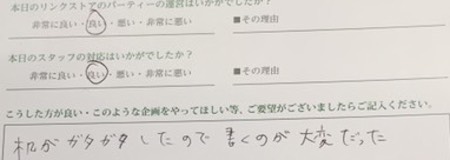 本日のリンクストアのパーティーの運営はいかがでしたか?
非常に良い・良い・悪い・非常に悪い ■その理由
本日のスタッフの対応はいかがでしたか?
非常に良い・良い・悪い・非常に悪い ■その理由
こうした方が良い・このような企画をやってほしい等、ご要望がございましたらご記入ください。
机がガタガタしたので書くのが大変だった